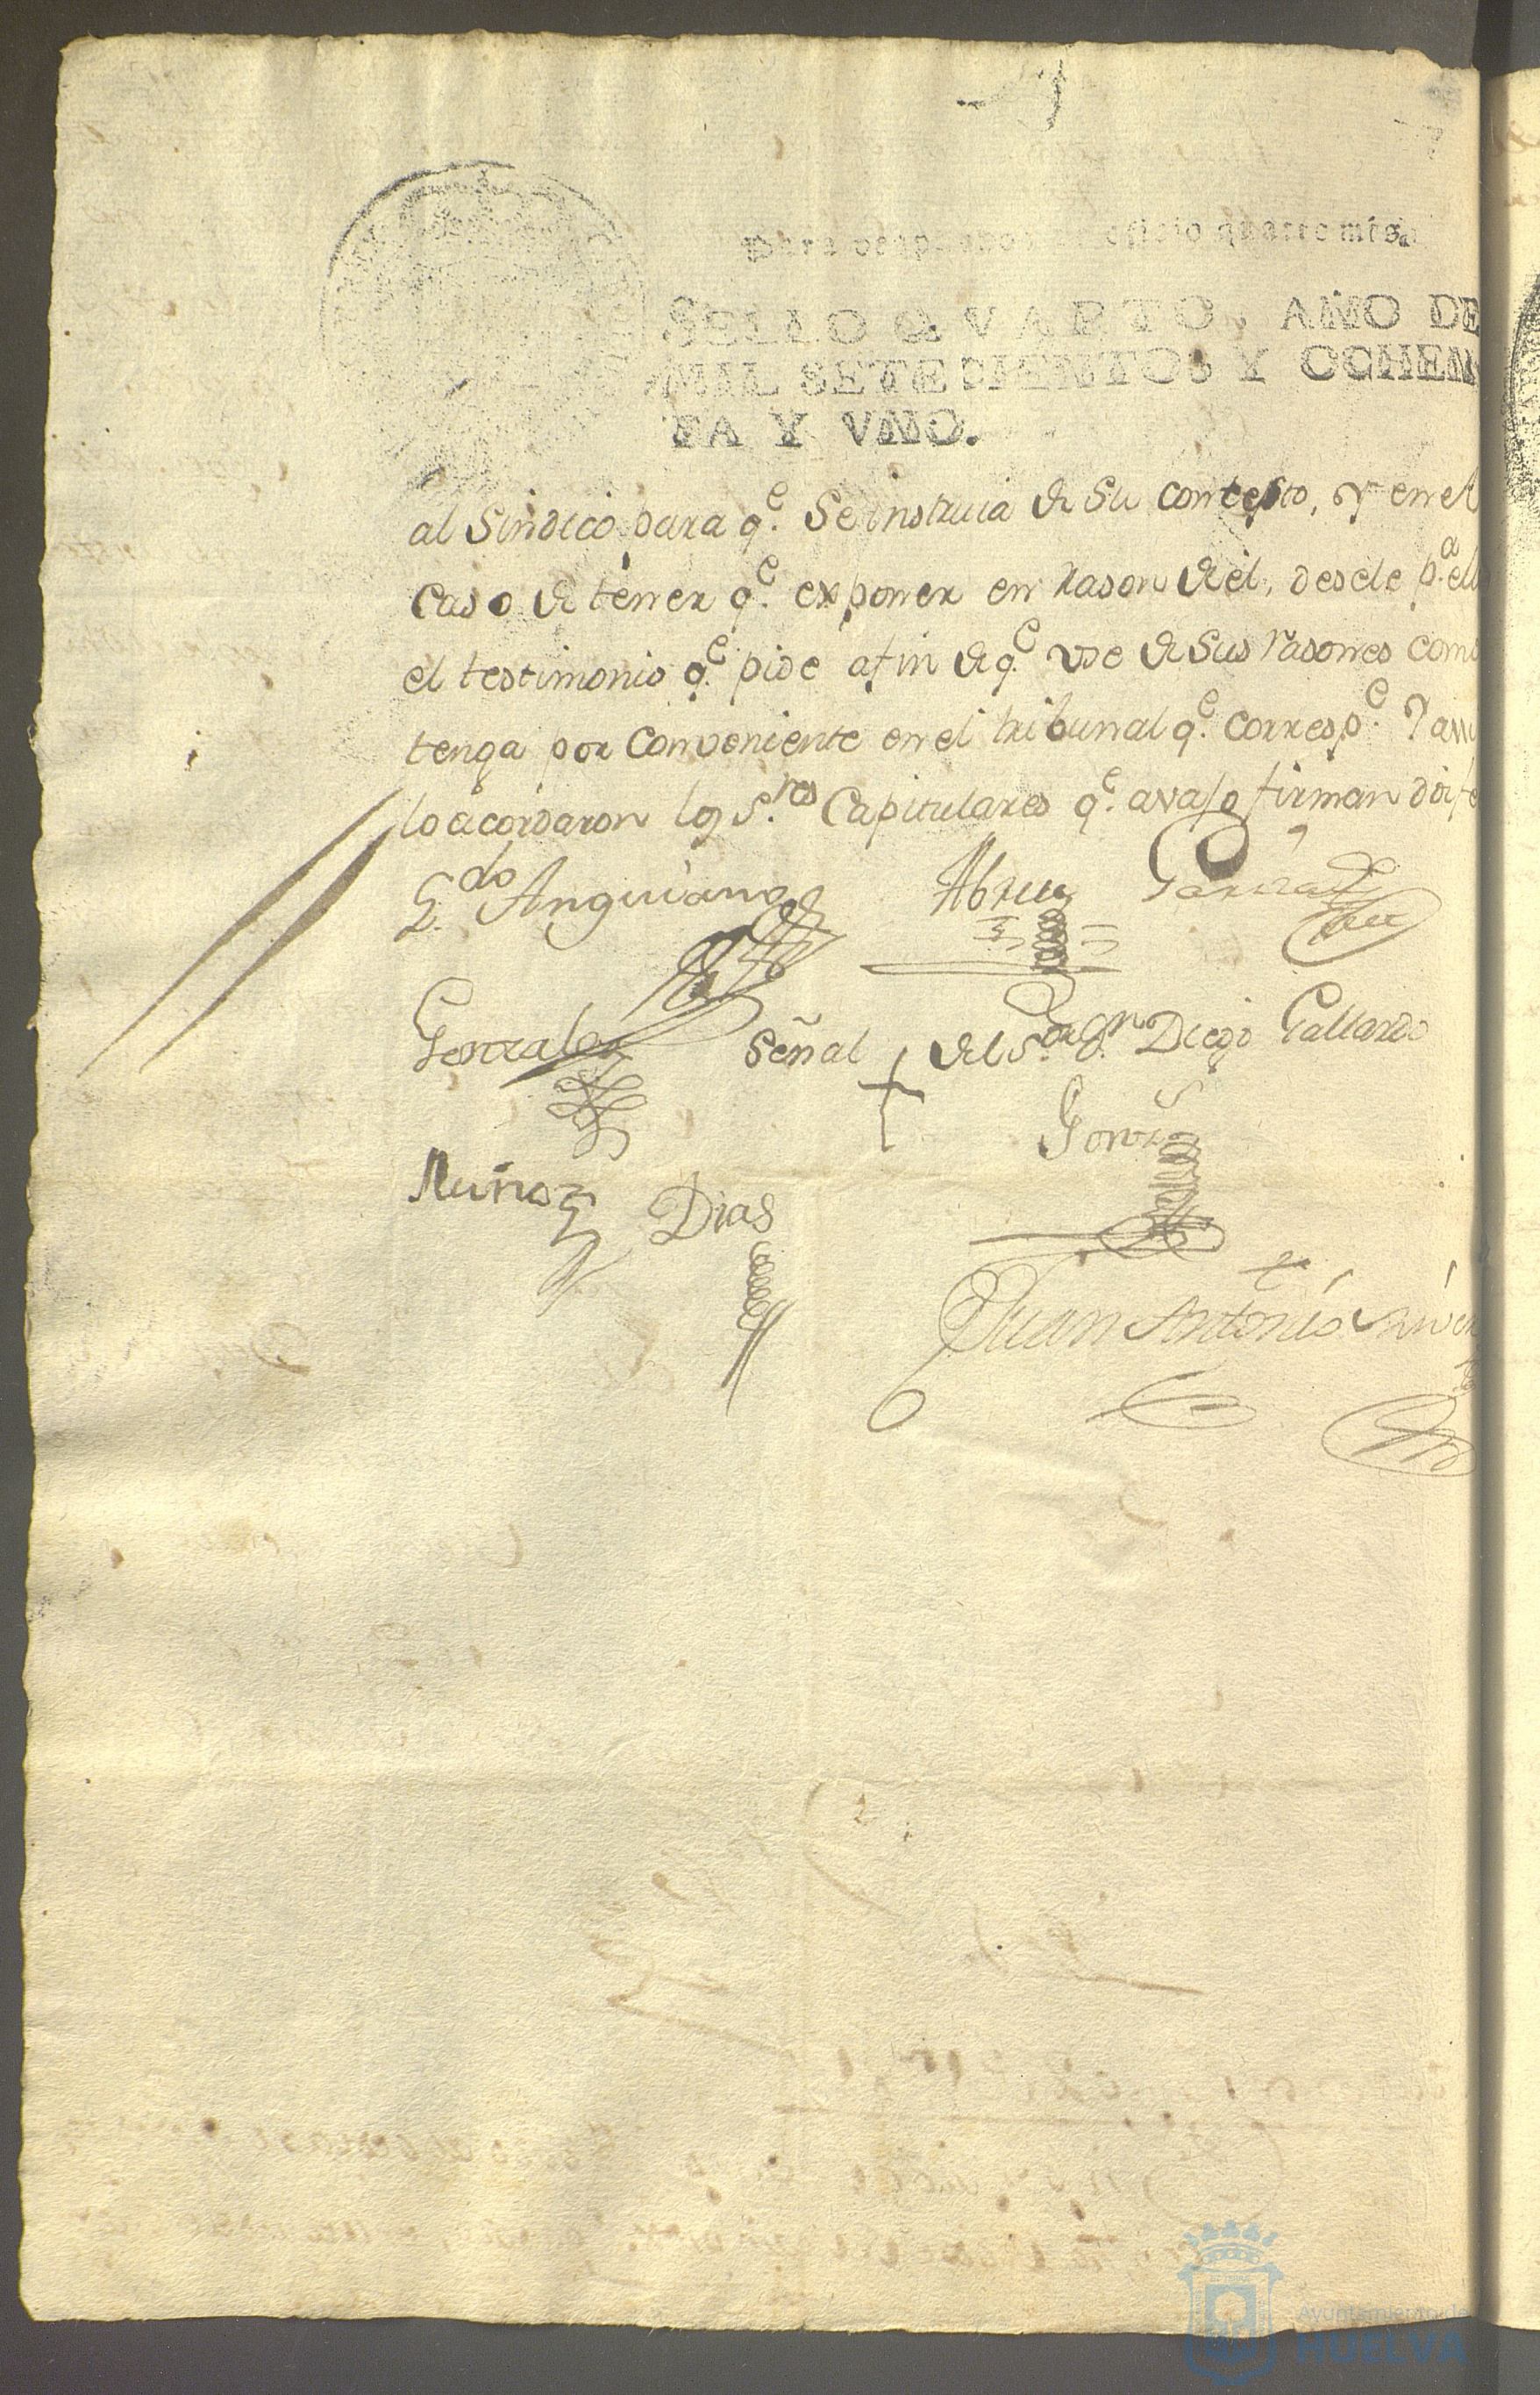 Para despachos de oficio quatro mrs.
SELLO QVARTO, AÑO DE
MIL SETECIENTOS Y OCHEN
TA Y VNO.
al Sindico para q.e Se instruia de Su contesto, y en el
Caso de tener q.e exponer en rason de el, desele p.a ello
el testimonio q.e pide afin de q.e Use de Sus rasones como
tenga por Conveniente en el tribunal q.e corresp.e Y assi
lo acordaron los S.res Capitulares q.e avajo firman doi fe
L.do Anguiano
Abreu
Garrido
Gonzalez
Señal + del S.or D.n Diego Gallardo
Muños
Dias
Juan Antonio
Ayuntamiento de
HUELVA